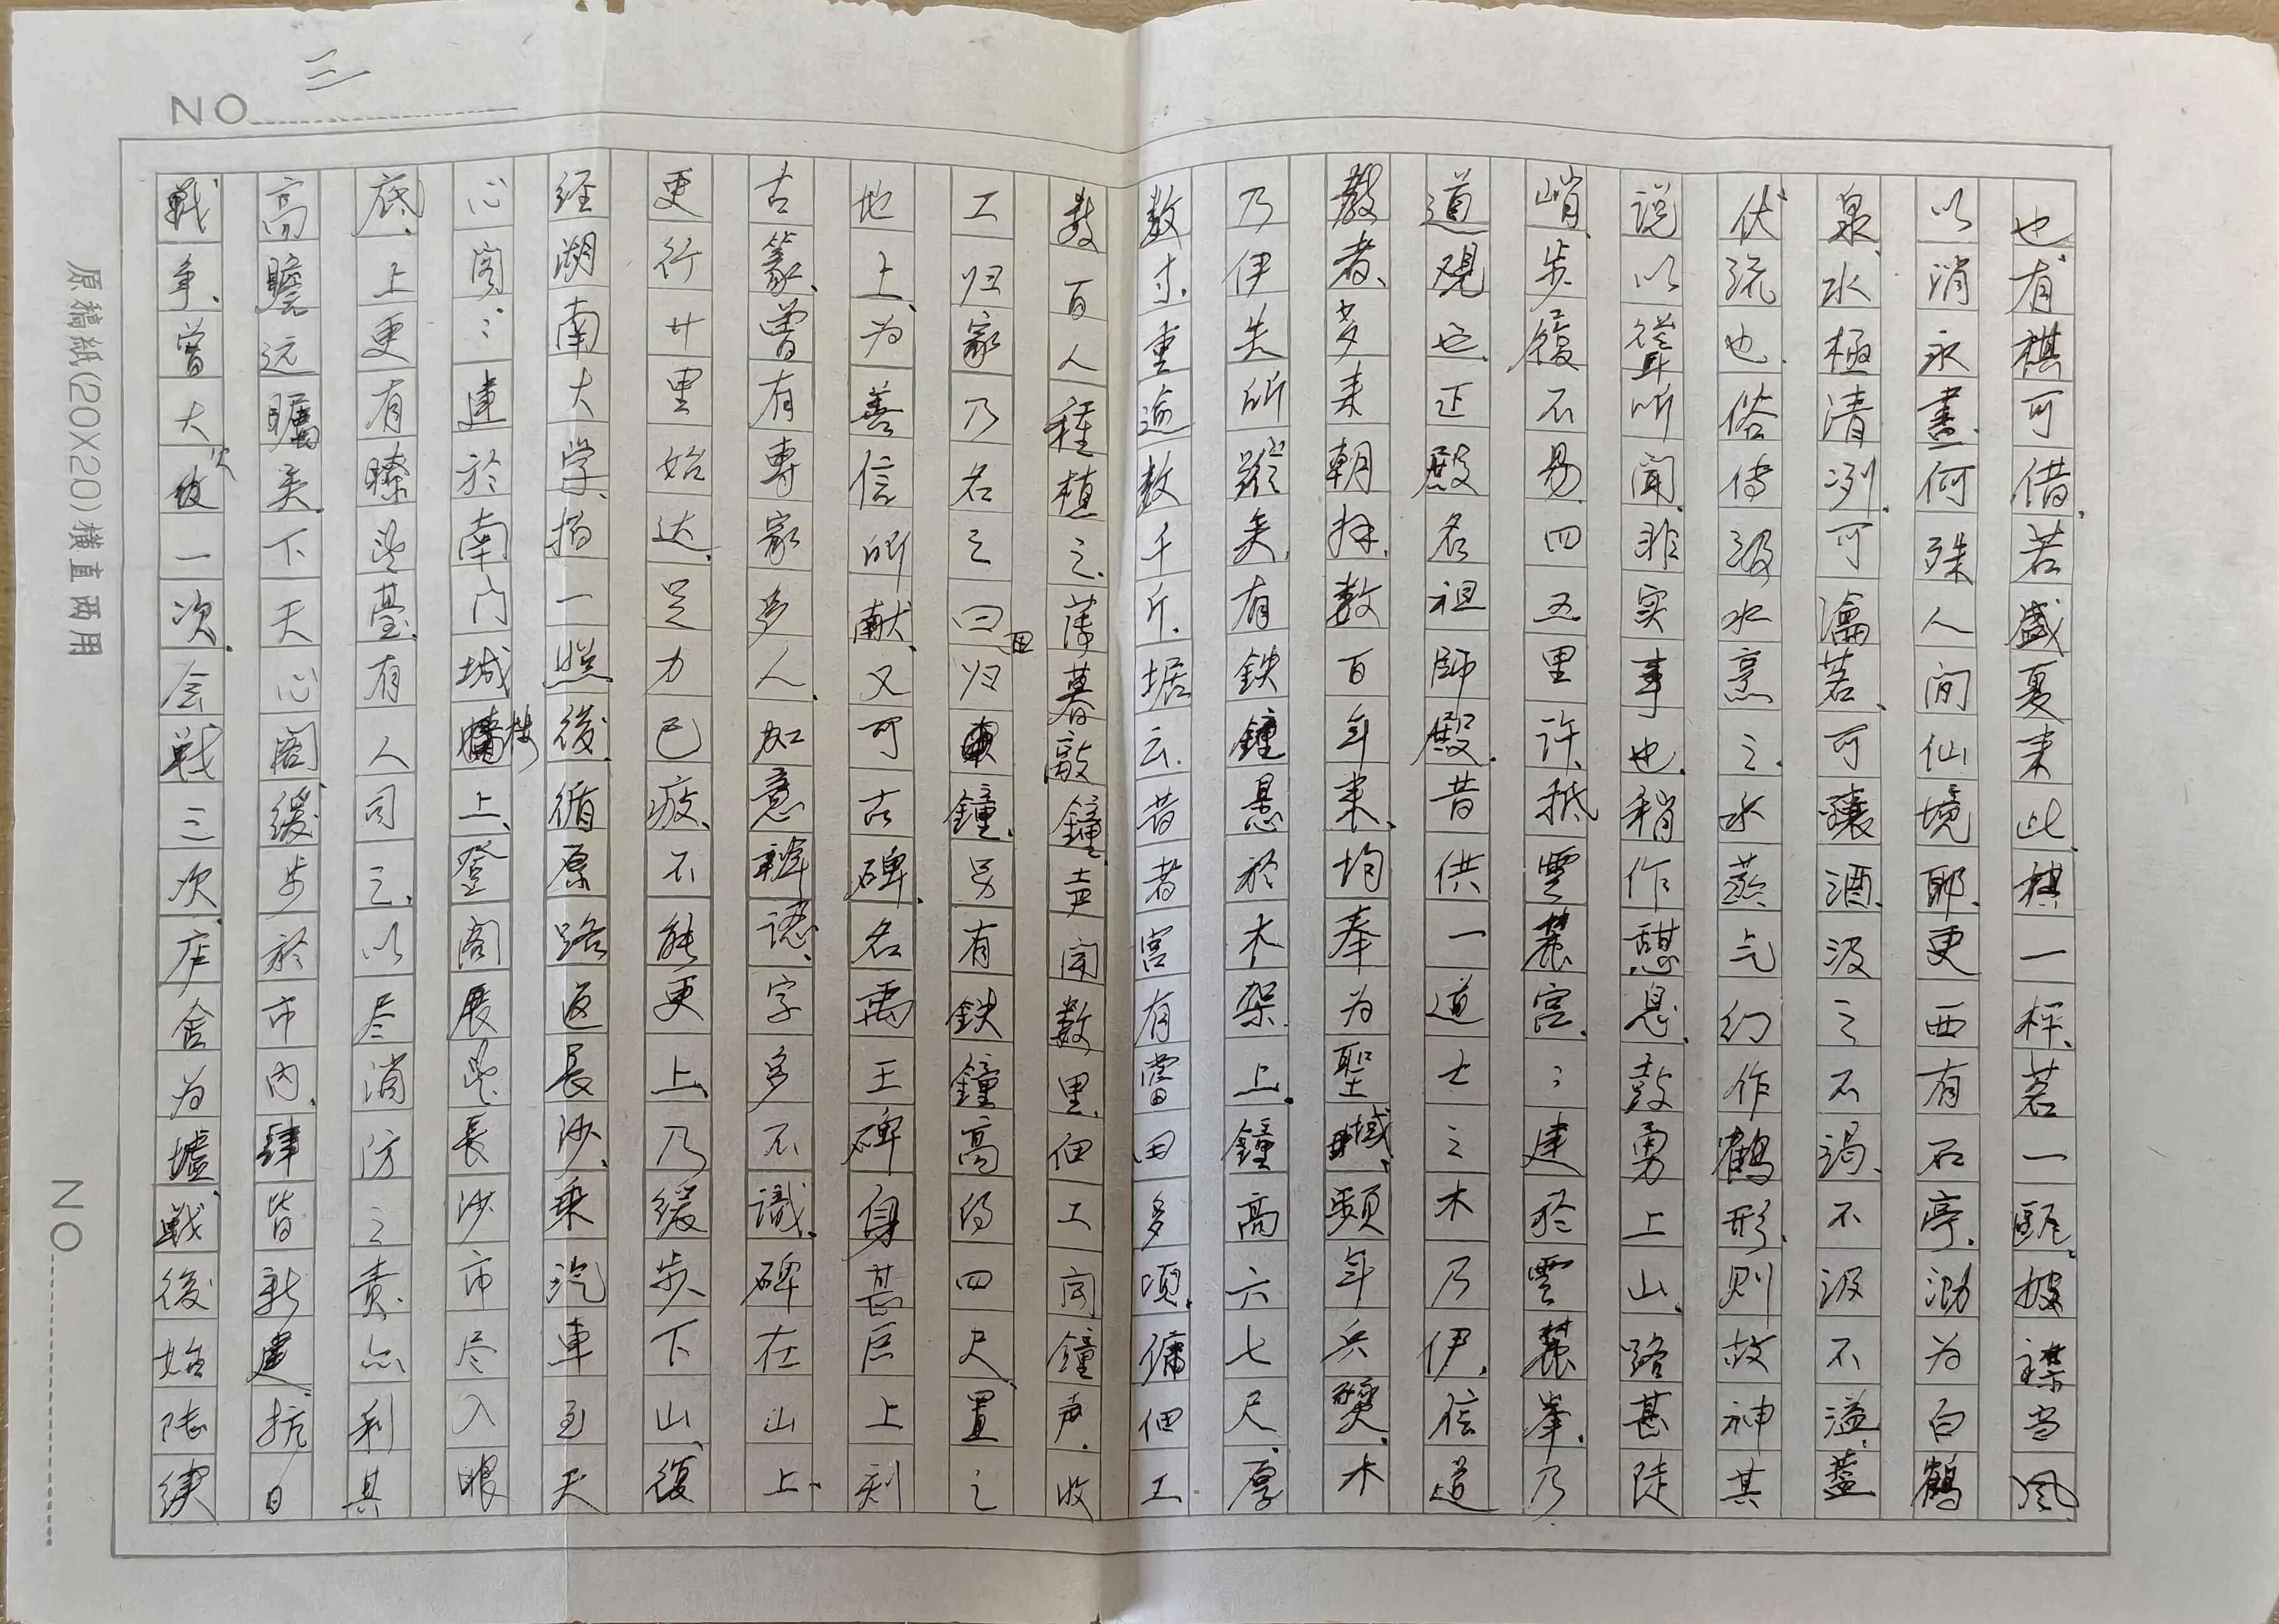 NO 三
也、有棋可借、若盛夏来此、棋一枰、茗一甌、披襟当風、
以消永晝、何殊人间仙境耶、更西有石亭、泐为白鶴
泉、水極清冽、可瀹茗、可釀酒、汲之不渴、不汲不溢、蓋
伏流也、俗传汲水烹之、水蒸气幻作鶴形、则故神其
说以聳听闻、非实事也、稍作憩息、鼓勇上山、路甚陡
峭、步履不易、四五里许、抵雲麓宫、〻建於雲麓峯、乃
道观也、正殿名祖師殿、昔供一道士之木乃伊、信道
教者、多来朝拜、数百年来、均奉为聖域、頻年兵燹、木
乃伊失所蹤矣、有鉄鐘悬於木架上、鐘高六七尺、厚
数寸、重逾数千斤、据云、昔者宫有當田多頃、傭佃工
数百人種植之、薄暮敲鐘、声闻数里、佃工闻鐘声、收
工归家、乃名之曰归田鐘、另有鉄鐘高约四尺、置之
地上、为善信所献、又可古碑、名禹王碑、身甚巨、上刻
古篆、曾有專家多人、加意辨認、字多不識、碑在山上、
更行廿里始达、足力已疲、不能更上、乃缓步下山、復
经湖南大学、摄一照後、循原路返長沙、乘汽車至天
心阁、〻建於南门城楼上、登阁展望、長沙市尽入眼
底、上更有瞭望臺、有人司之、以尽消防之责、点利其
高瞻远矚矣、下天心阁、缓步於市内、肆皆新建、抗日
戦争、曾大火一次、会戦三次、庐舍为墟、戦後始陆续
原稿紙(20X20)橫直両用
NO